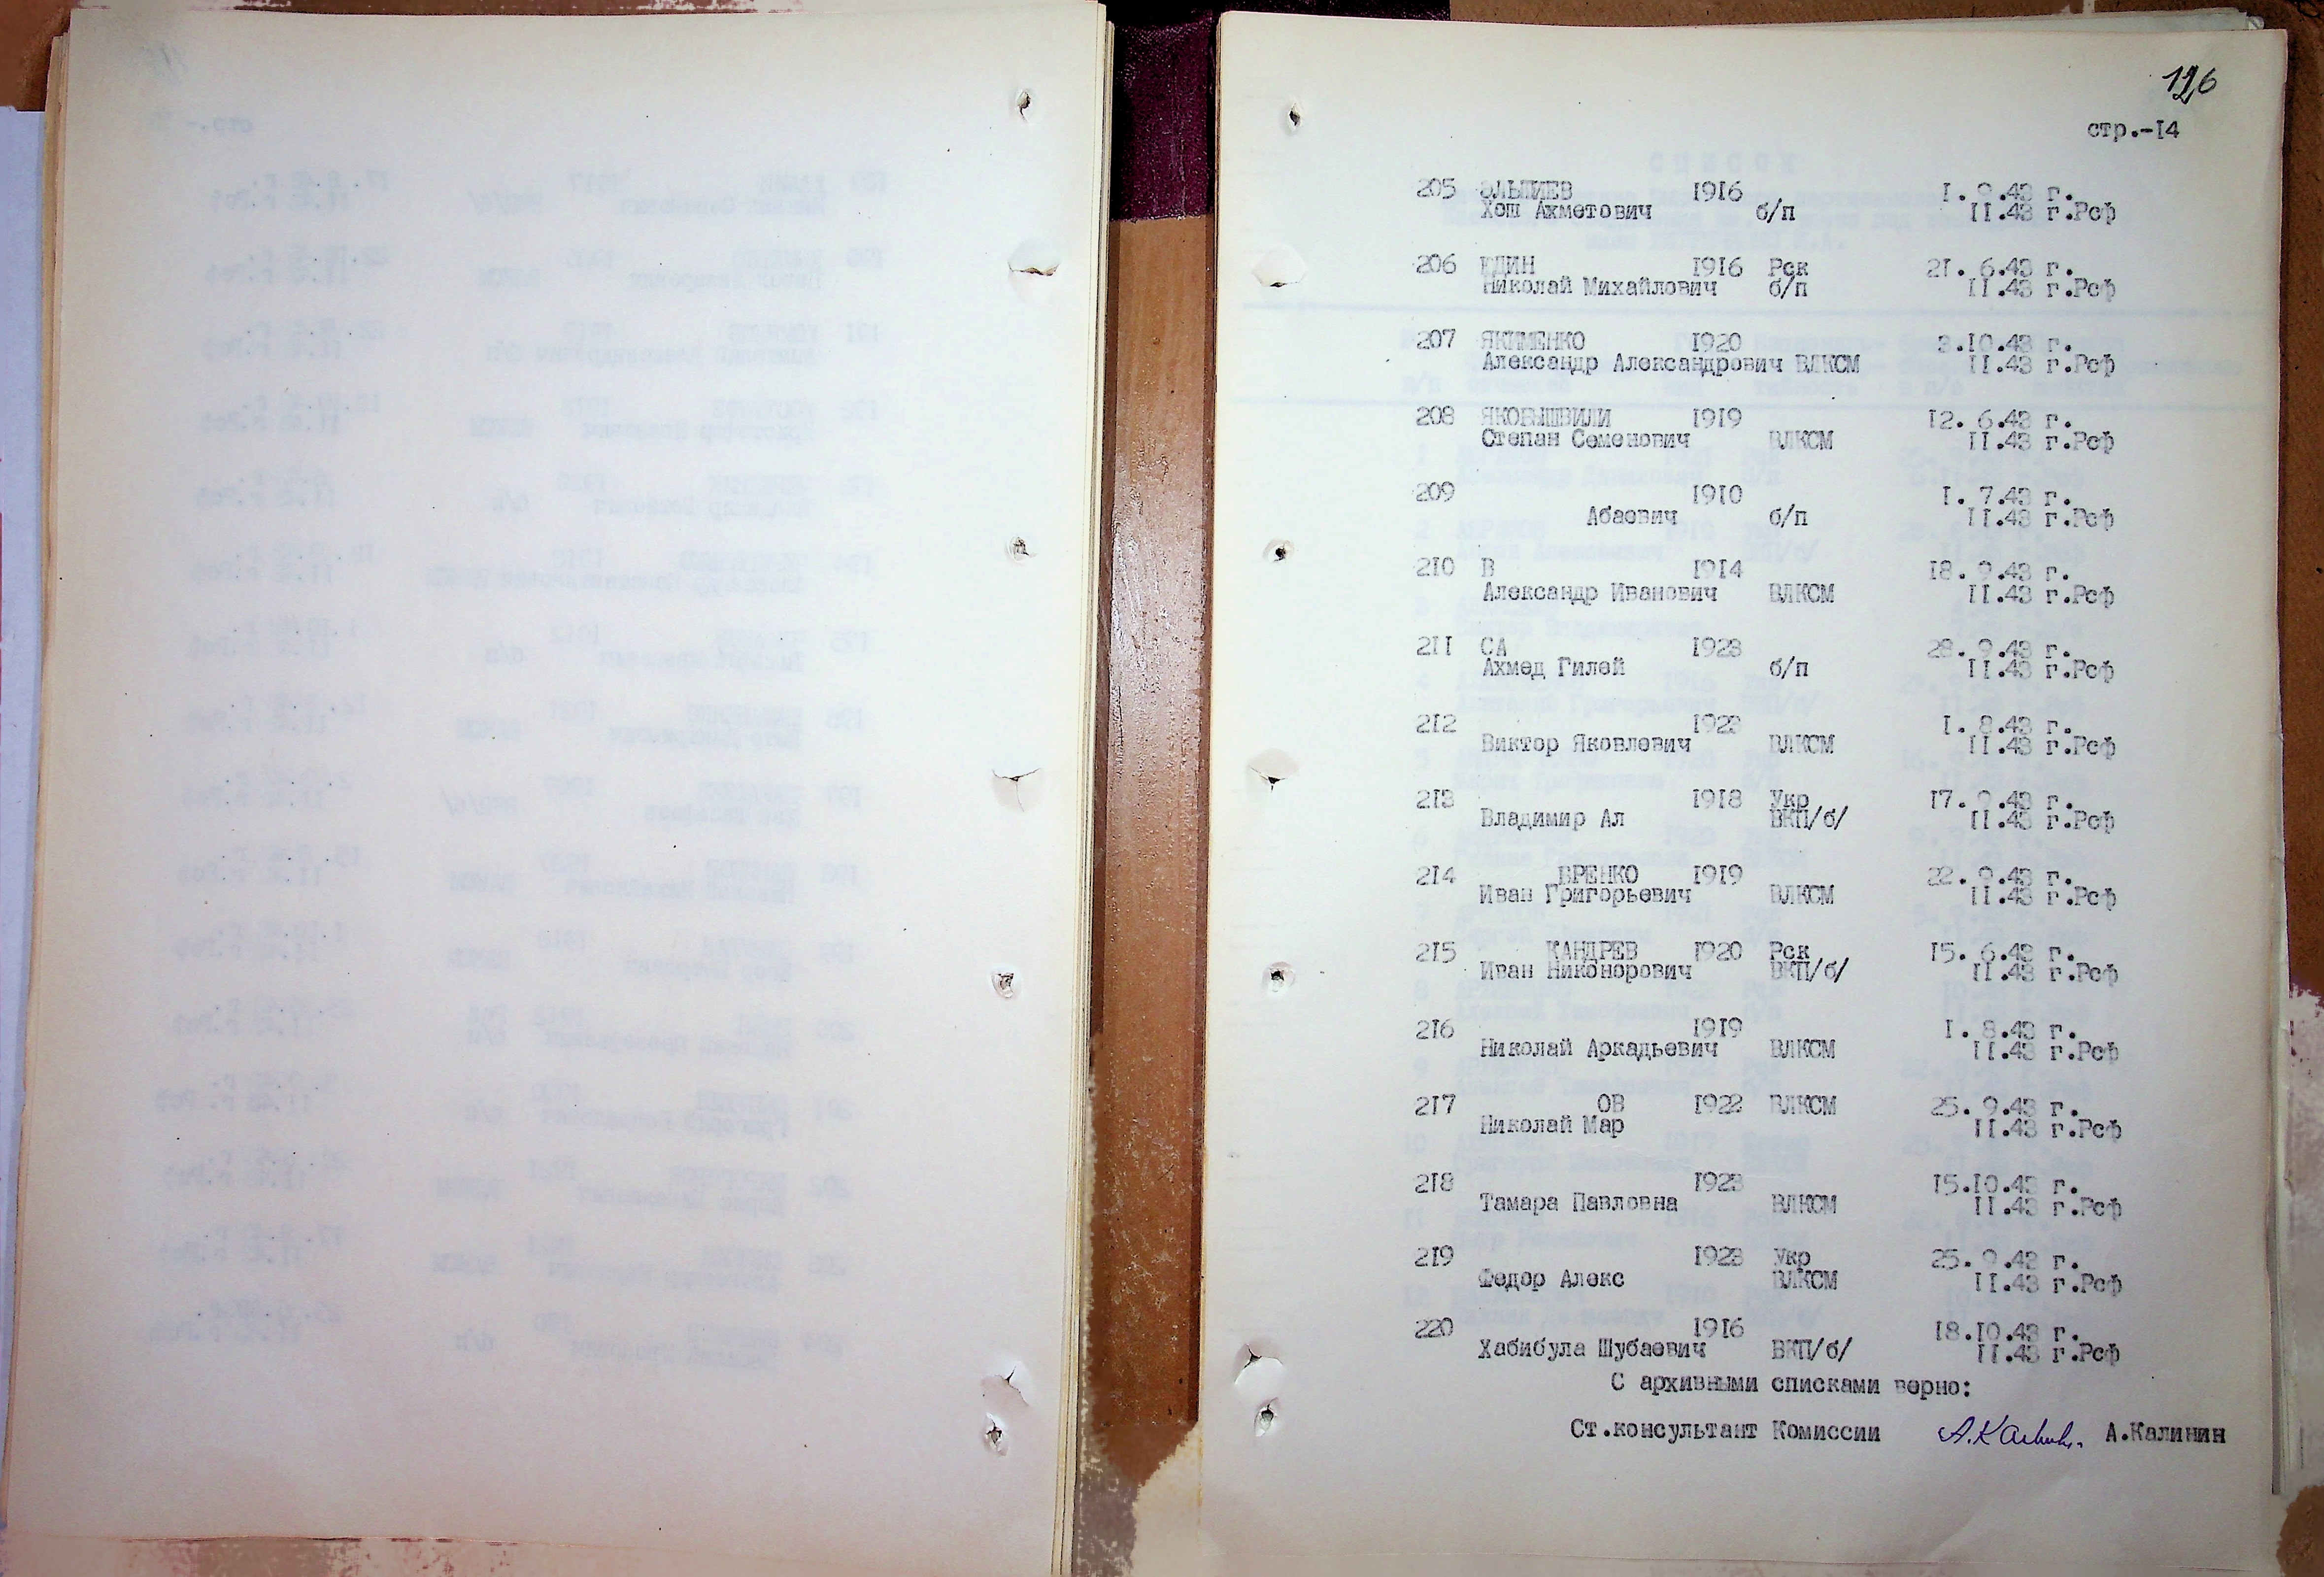 126
стр.-I4
205 ЭЛЬПИЕВ I9I6 I. 9.43 г.
Хош Ахметович б/п II.43 г.Рсф
206 ЮДИН I9I6 Рск 2I. 6.43 г.
Николай Михайлович б/п II.43 г.Рсф
207 ЯКИМЕНКО I920 3.I0.43 г.
Александр Александрович ВЛКСМ II.43 г.Рсф
208 ЯКОБЫШВИЛИ I9I9 I2. 6.43 г.
Степан Семенович ВЛКСМ II.43 г.Рсф
209 I9I0 I. 7.43 г.
Абаевич б/п II.43 г.Рсф
2I0 В I9I4 I8. 9.43 г.
Александр Иванович ВЛКСМ II.43 г.Рсф
2II СА I923 28. 9.43 г.
Ахмед Гилей б/п II.43 г.Рсф
2I2 I923 I. 8.43 г.
Виктор Яковлевич ВЛКСМ II.43 г.Рсф
2I3 I9I8 Укр I7. 9.43 г.
Владимир Ал ВКП/б/ II.43 г.Рсф
2I4 ВРЕНКО I9I9 22. 9.43 г.
Иван Григорьевич ВЛКСМ II.43 г.Рсф
2I5 КАНДРЕВ I920 Рск I5. 6.43 г.
Иван Никонорович ВКП/б/ II.43 г.Рсф
2I6 I9I9 I. 8.43 г.
Николай Аркадьевич ВЛКСМ II.43 г.Рсф
2I7 ОВ I922 ВЛКСМ 25. 9.43 г.
Николай Мар II.43 г.Рсф
2I8 I923 I5.I0.43 г.
Тамара Павловна ВЛКСМ II.43 г.Рсф
2I9 I923 Укр 25. 9.43 г.
Федор Алекс ВЛКСМ II.43 г.Рсф
220 I9I6 I8.I0.43 г.
Хабибула Шубаевич ВКП/б/ II.43 г.Рсф
С архивными списками верно:
Ст.консультант Комиссии А.Калинин